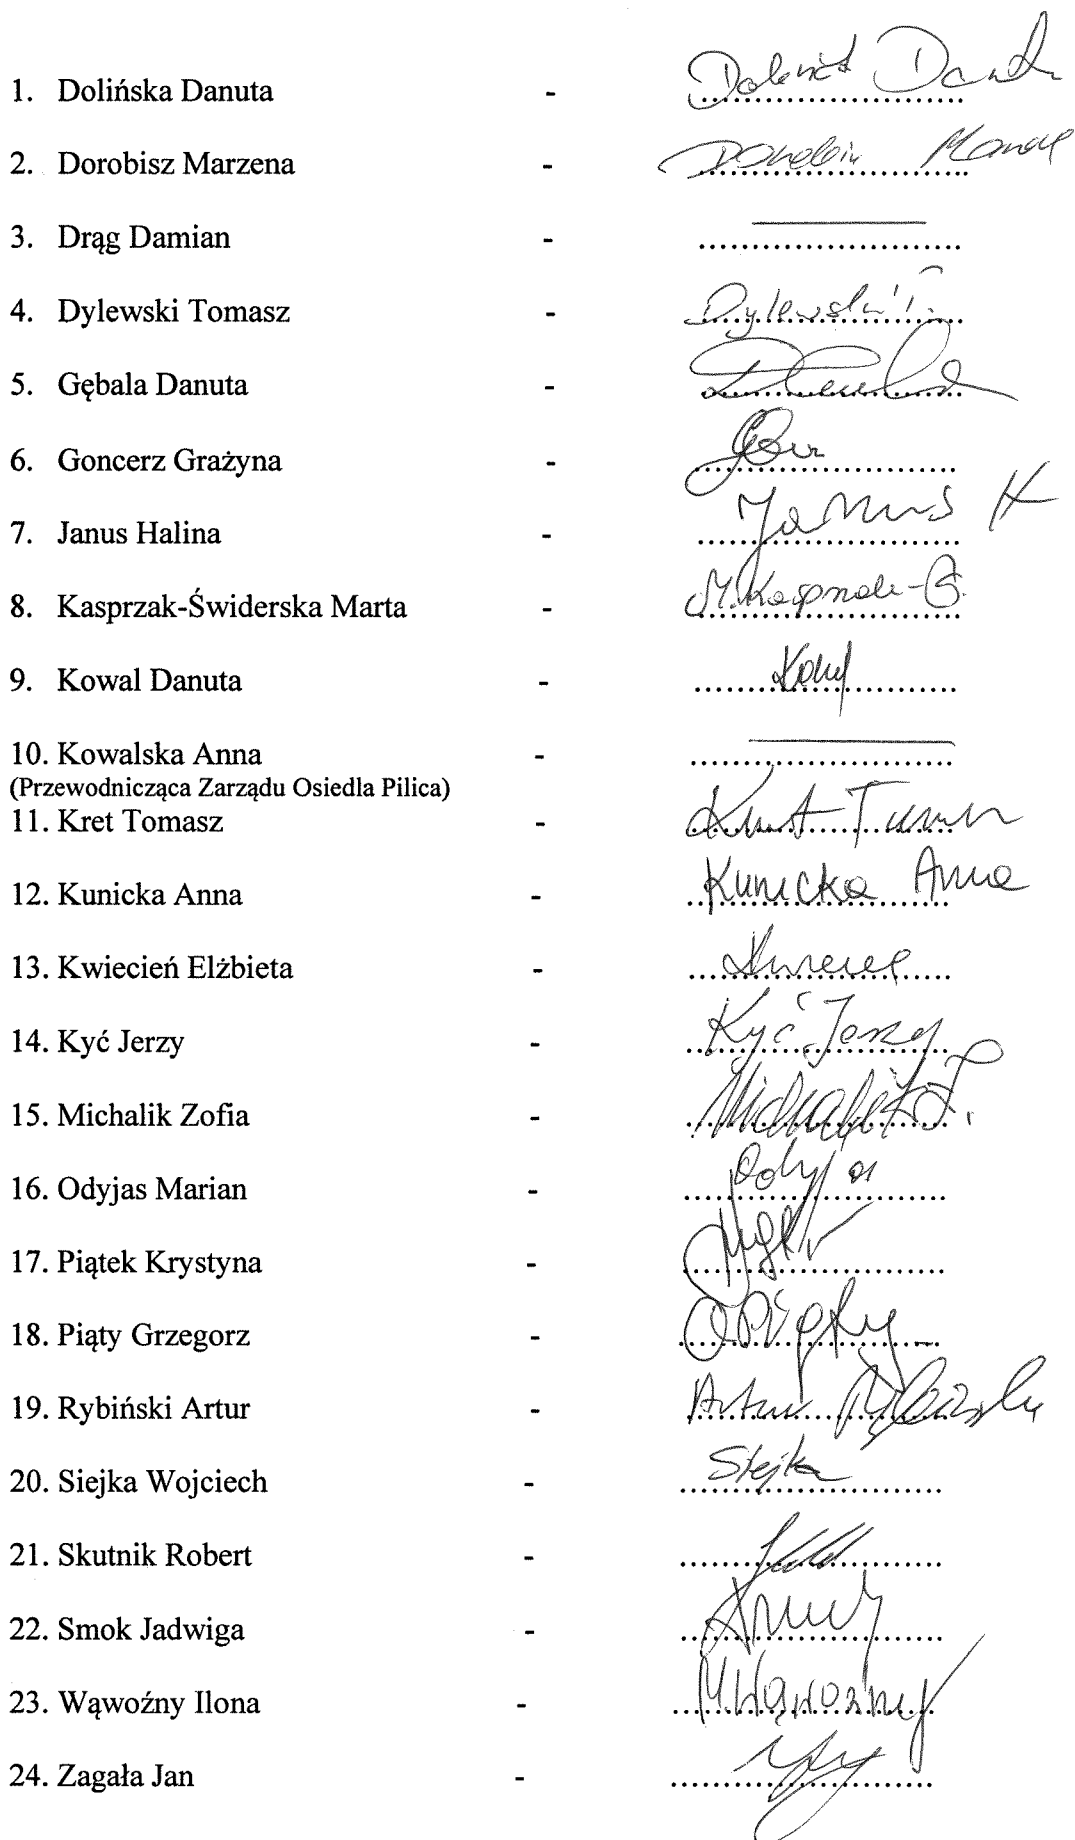 1. Dolińska Danuta -
2. Dorobisz Marzena -
3. Drąg Damian -
4. Dylewski Tomasz - Dylewski T.
5. Gębala Danuta -
6. Goncerz Grażyna -
7. Janus Halina - Janus H
8. Kasprzak-Świderska Marta - M. Kasprzak-Ś.
9. Kowal Danuta -
10. Kowalska Anna -
(Przewodnicząca Zarządu Osiedla Pilica)
11. Kret Tomasz - Kret Tomasz
12. Kunicka Anna - Kunicka Anna
13. Kwiecień Elżbieta -
14. Kyć Jerzy - Kyć Jerzy
15. Michalik Zofia - Michalik Z.
16. Odyjas Marian -
17. Piątek Krystyna -
18. Piąty Grzegorz -
19. Rybiński Artur - Artur Rybiński
20. Siejka Wojciech - Siejka
21. Skutnik Robert -
22. Smok Jadwiga -
23. Wąwoźny Ilona -
24. Zagała Jan -